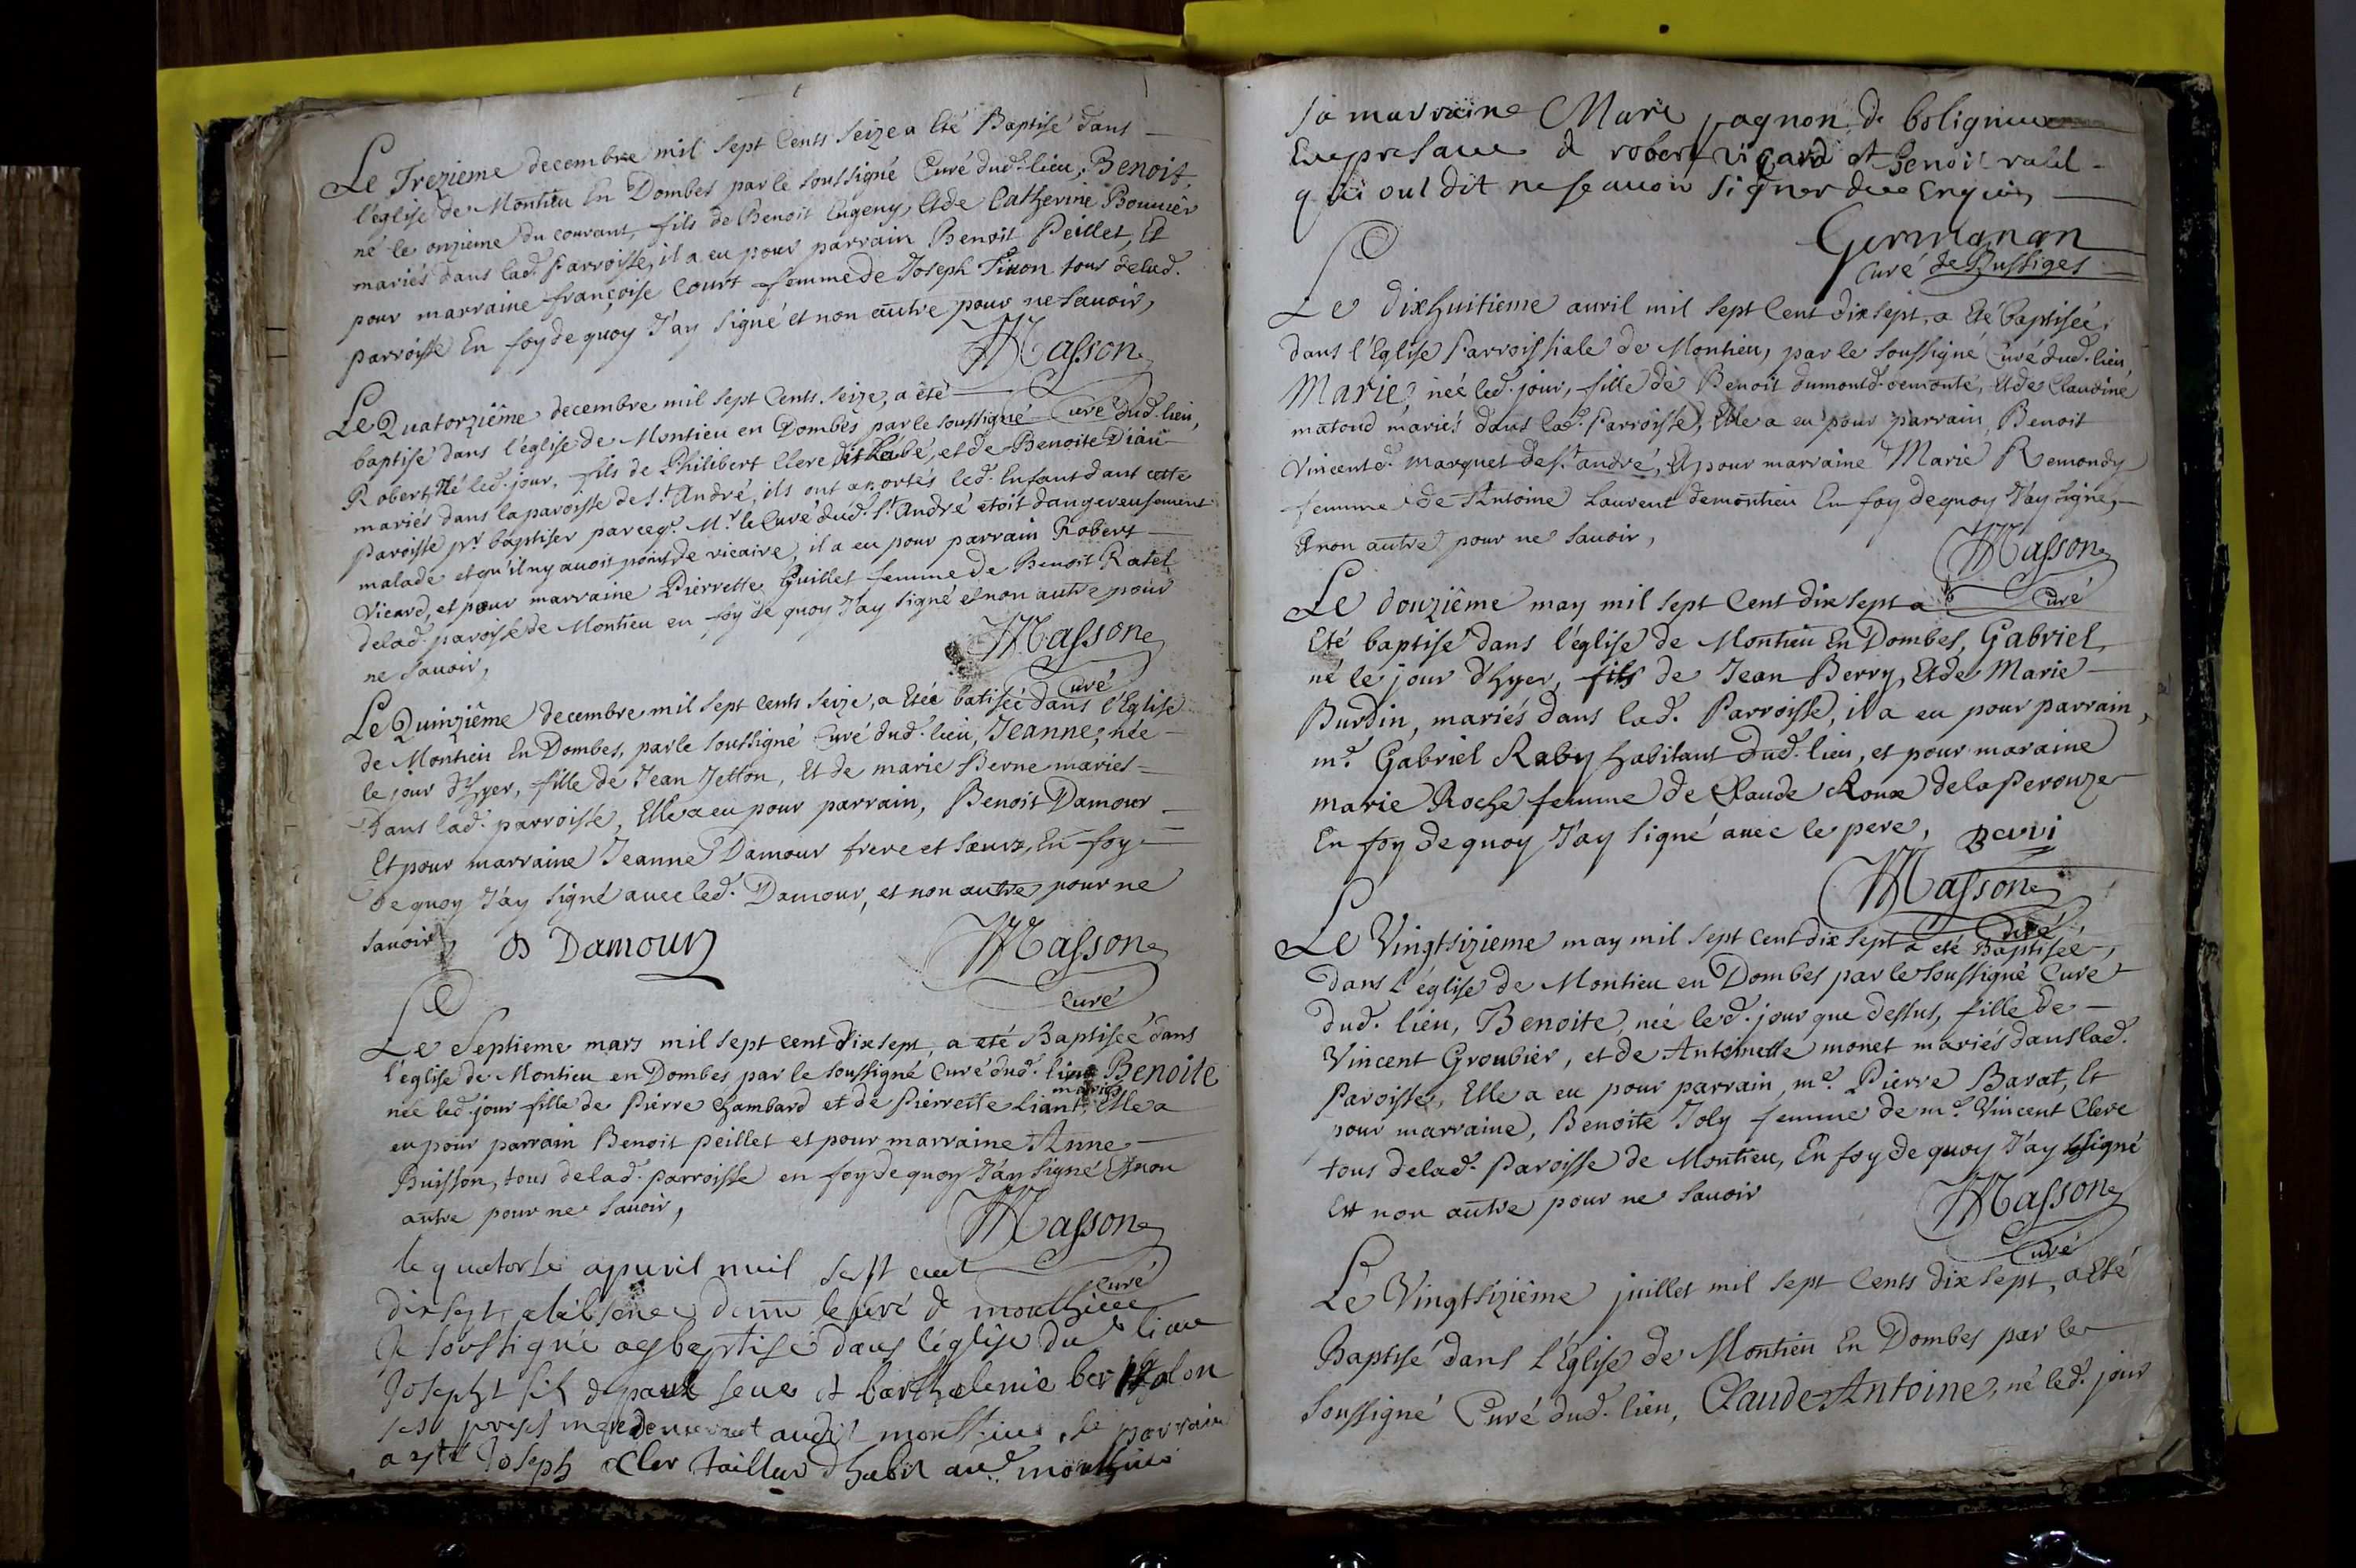 Le Trezieme decembre mil sept Cents Seize a Eté Baptisé dans
l'eglise de Montieu En Dombes par le soussigné Curé dud. lieu, Benoit,
né le onzieme du courant, fils de Benoit Eugeny, et de Catherine Bouvier
mariés dans lad. Parroisse, il a eu pour parrain Benoit Peillet, Et
pour marraine françoise Court femme de Joseph tous de lad.
parroisse En foy de quoy J'ay signé et non autre pour ne savoir,
Masson
Le Quatorziême decembre mil sept Cents Seize, a été
Curé
baptisé dans l'église de Montieu en Dombes par le soussigné Curé dud. lieu,
Robert, Né led. jour, fils de Philibert Clerc dit l'abé, et de Benoite
mariés dans la paroisse de S.t André, ils ont aportés led. Enfant dans cette
Paroisse p.r baptiser parceq. M.r le Curé dud. S.t André etoit dangereusement
malade et qu'il ny avoit point de vicaire, il a eu pour parrain Robert
Vicard, et pour marraine Pierrette Guillet femme de Benoit Ratel
de lad. paroisse de Montieu en foy de quoy J'ay signé et non autre pour
ne savoir,
Masson
Curé
Le Quinziême decembre mil sept cents seize, a Etée batisée dans l'Eglise
de Montieu En Dombes, par le soussigné Curé dud. lieu, Jeanne, née
le jour d'hyer, fille de Jean Jetton, Et de marie Berne mariés
dans lad. parroisse, Elle a eu pour parrain, Benoit Damour
Et pour marraine Jeanne Damour frere et soeurs, En foy
de quoy J'ay signé avec led. Damour, et non autre pour ne
savoir,
B Damour
Masson
Curé
Le Septieme mars mil sept cent dix sept, a eté Baptisée dans
l'eglise de Montieu en Dombes par le soussigné Curé dud. lieu Benoite
mariés
née led. jour fille de Pierre Chambard et de Pierrette Liant, Elle a
eu pour parrain Benoit peillet et pour marraine Anne
Buisson, tous de lad. parroisse en foy de quoy J'ay signé Et non
autre pour ne savoir,
Masson
Curé
le quatorse apuril mil sept cent
dix sept, a l'absence de le curé d
Je soussigné ay baptisé dans l'église dud. lieu
Josepht fils d paul seue et
ses demeurant audit le parrain
a esté Joseph Cler tailleur d'habit aud.
sa marraine Marie pagnon de boligneux
En presance d robert vicard et benoit ratel
qui out dit ne scauoir signer de ce Enquis
Germanan
Curé de Bussiges
Le dixhuitieme avril mil sept cent dix sept, a Eté baptisée,
dans l'Eglise Parroissiale de Montieu, par le soussigné Curé dud. lieu
Marie, née led. jour, fille de Benoit dumont d. demonté, et de Claudine
matoud mariés dans lad. Parroisse, Elle a eu pour parrain Benoit
Vincent d. marquet de S.t andré, Et pour marraine Marie Remondy
femme de Antoine Laurent de montieu En foy de quoy J'ay signé,
Et non autre pour ne savoir,
Masson
Curé
Le douziême may mil sept Cent dix sept a
Eté baptisé dans l'église de Montieu En Dombes, Gabriel,
né le jour d'hyer, fils de Jean Berry, Et de Marie
Burdin, mariés dans lad. Parroisse, il a eu pour parrain,
m.e Gabriel Raby habitant dud. lieu, et pour maraine
marie Roche femme de Claude Roux de la Perouze
En foy de quoy J'ay signé avec le pere,
Berri
Masson
Curé
Le Vingtsizieme may mil sept cent dix sept a eté Baptisée,
dans l'église de Montieu en Dombes par le soussigné Curé
dud. lieu, Benoite, née led. jour que dessus, fille de
Vincent Groubier, et de Antoinette monet mariés dans lad.
Paroisse, Elle a eu pour parrain, m.e Pierre Barat, Et
pour marraine, Benoite Joly femme de m.e Vincent Clerc
tous de lad. Paroisse de Montieu, En foy de quoy J'ay signé
Et non autre pour ne savoir
Masson
Curé
Le Vingtsiziême juillet mil sept Cents dix sept, a Eté
Baptisé dans l'Eglise de Montieu En Dombes par le
soussigné Curé dud. lieu, Claude Antoine, né led. jour